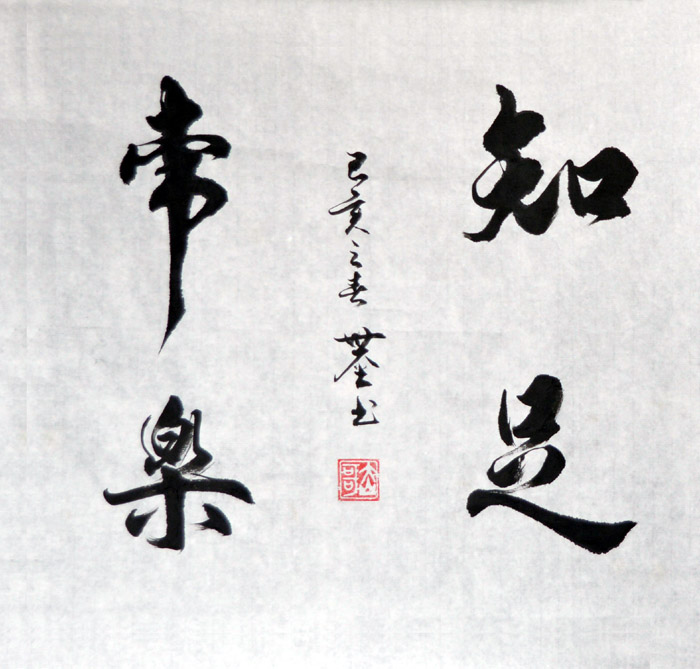 知足
常樂
己亥之春